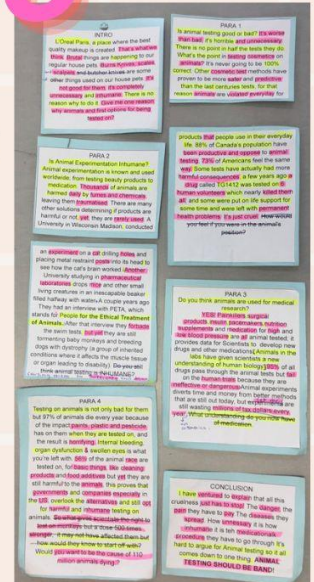 INTRO
L'Oreal Paris, a place where the best
quality makeup is created. That's what we
think. Brutal things are happening to our
regular house pets. Burns, Knives,
scalpels and butcher knives are some
other things used on our house pets. It's
not good for them, it's completely
unnecessary and inhumane. There is no
reason why to do it. Give me one reason
why animals and first option for being
tested on?
PARA 1
Is animal testing good or bad? It's worse
than bad, it's horrible and unnecessary.
There is no point in half the tests they do.
What's the point in testing cosmetics on
animals? It's never going to be 100%
correct. Other cosmetic test methods have
proven to be more safer and predictive
than the last centuries tests, for that
reason animals are violated everyday for
products that people use in their everyday
life. 68% of Canada's population have
been productive and oppose to animal
testing. 73% of Americans feel the same
way. Some tests have actually had more
harmful consequences, a few years ago a
drug called TG1412 was tested on 6
human volunteers which nearly killed them
all, and some were put on life support for
some time and were left with permanent
health problems. It's just cruel. How would
you feel if you were in the animal's
position?
PARA 2
Is Animal Experimentation Inhumane?
Animal experimentation is known and used
worldwide, from testing beauty products to
medication. Thousands of animals are
harmed daily by fumes and chemicals
leaving them traumatised. There are many
other solutions determining if products are
harmful or not, yet they are rarely used. A
University in Wisconsin Madison, conducted
an experiment on a cat drilling holes and
placing metal restraint posts into its head to
see how the cat's brain worked. Another
University studying in pharmaceutical
laboratories drops mice and other small
living creatures in an inescapable beaker
filled halfway with water. A couple years ago
They had an interview with PETA, which
stands for People for the Ethical Treatment
of Animals. After that interview they forbade
the swim tests but yet they are still
tormenting baby monkeys and breeding
dogs with dystrophy (a group of inherited
conditions where it affects the muscle tissue
or organ leading to disability). Do you still
think animal testing is INHUMANE?
PARA 3
Do you think animals are used for medical
research?
YES! Painkillers, surgical
products, insulin, pacemakers, nutrition
supplements and medication for high and
low blood pressure are all animal tested. It
provides data for Scientists to develop new
drugs and other medications. Animals in the
labs have given scientists a new
understanding of human biology. 95% of all
drugs pass through the animal tests but fail
on the human trials because they are
ineffective or dangerous. Animal experiments
diverts time and money from better methods
that are still out today, but experiments are
still wasting millions of tax dollars every
year. What understanding do you have
of medication.
PARA 4
Testing on animals is not only bad for them
but 97% of animals die every year because
of the impact paints, plastic and pesticide
has on them when they are tested on, and
the result is horrifying. Internal bleeding,
organ dysfunction & swollen eyes is what
you're left with. 56% of the animal race are
tested on, for basic things, like cleaning
products and food additives but yet they are
still harmful to the animals. this proves that
governments and companies especially in
the US, overlook the alternatives and still opt
for harmful and inhumane testing on
animals. Do what gives scientists the right to
test on monkeys but a true 500 times
strength, it may not have affected them but
how would they know to start off with?
Would you want to be the cause of 110
million animals dying?
CONCLUSION
I have ventured to explain that all this
cruelness just has to stop! The danger, the
pain they have to pay. The diseases they
spread. How unnecessary it is how
inhumane it is teh medications
procedure they have to go through! It's
hard to argue for Animal testing so it all
comes down to one thing. ANIMAL
TESTING SHOULD BE BAN!